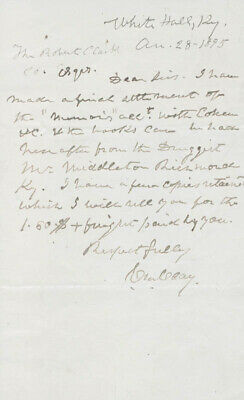 White Hall, Ky.
The Robert Clark Jan. 28-1895
Co.
Dear Sirs. I have
made a final settlement of
the "Memoirs" acct. with Coken
&C. & the books can be had
here after from the Druggist
Mr. Middleton Richmond
Ky. I have a few copies
which I will sell you for the
1.50 & freight paid by you.
Respectfully
C M Clay.